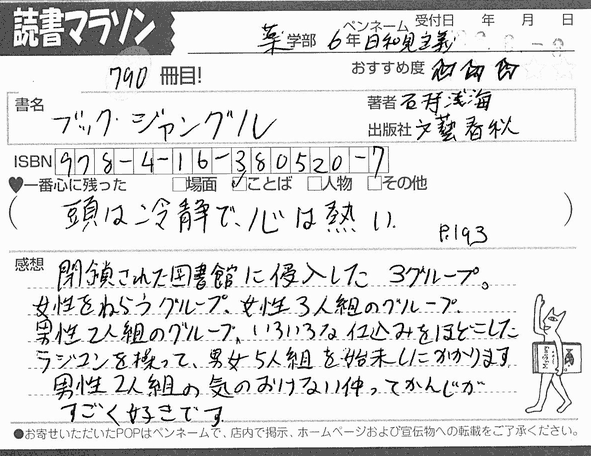 読書マラソン
薬学部 6年 ペンネーム 日和見主義 受付日 年 月 日
790冊目! おすすめ度
書名 ブック・ジャングル
著者 石持浅海
出版社 文藝春秋
ISBN 978-4-16-380520-7
♥一番心に残った □場面 ☑ことば □人物 □その他
(頭は冷静で、心は熱い. P.193)
感想
閉鎖された図書館に侵入した 3グループ。
女性をねらうグループ、女性3人組のグループ、
男性2人組のグループ、いろいろな仕込みをほどこした
ラジコンを操って、男女5人組を始末しにかかります
男性2人組の気のおけない仲ってかんじが
すごく好きです
●お寄せいただいたPOPはペンネームで、店内で掲示、ホームページおよび宣伝物への転載をご了承ください。